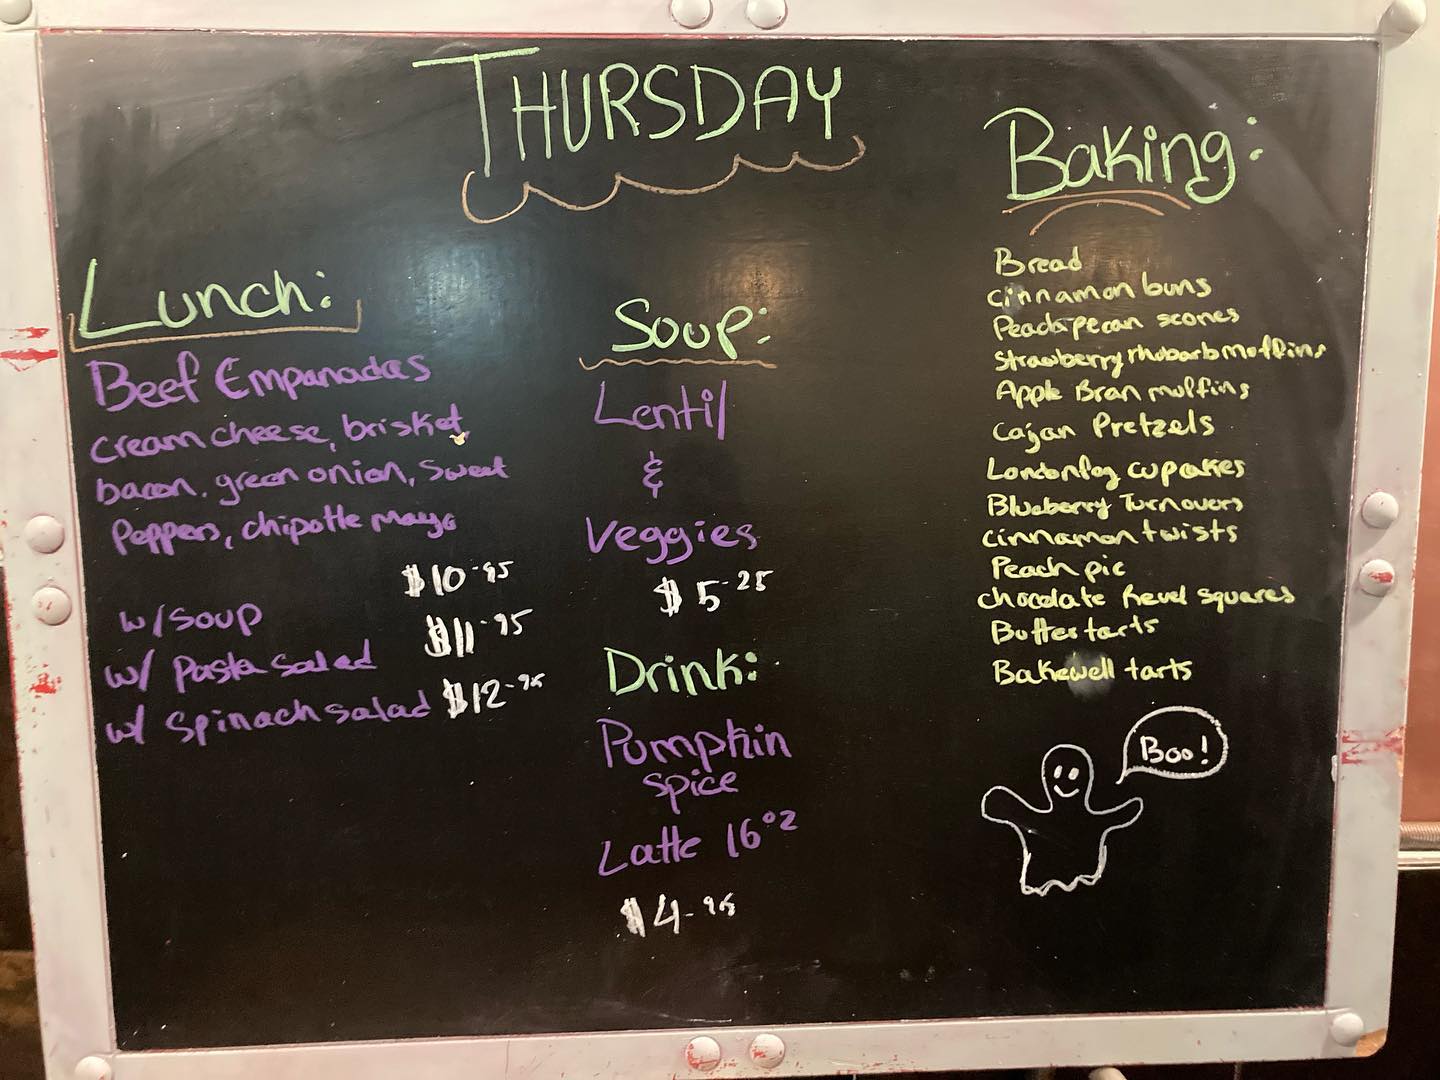 THURSDAY
Lunch:
Beef Empanadas
cream cheese, brisket
bacon, green onion, sweet
Peppers, chipotle mayo
$10.95
w/ soup
$11.95
w/ Pasta salad
w/ Spinach salad $12.95
Soup:
Lentil
&
Veggies
$5.25
Drink:
Pumpkin
spice
Latte 16oz
$4.95
Baking:
Bread
cinnamon buns
Peach pecan scones
Strawberry rhubarb muffins
Apple Bran muffins
Cajan Pretzels
London fog cupcakes
Blueberry Turnovers
cinnamon twists
Peach pie
chocolate Revel squares
Butter tarts
Bakewell tarts
Boo!